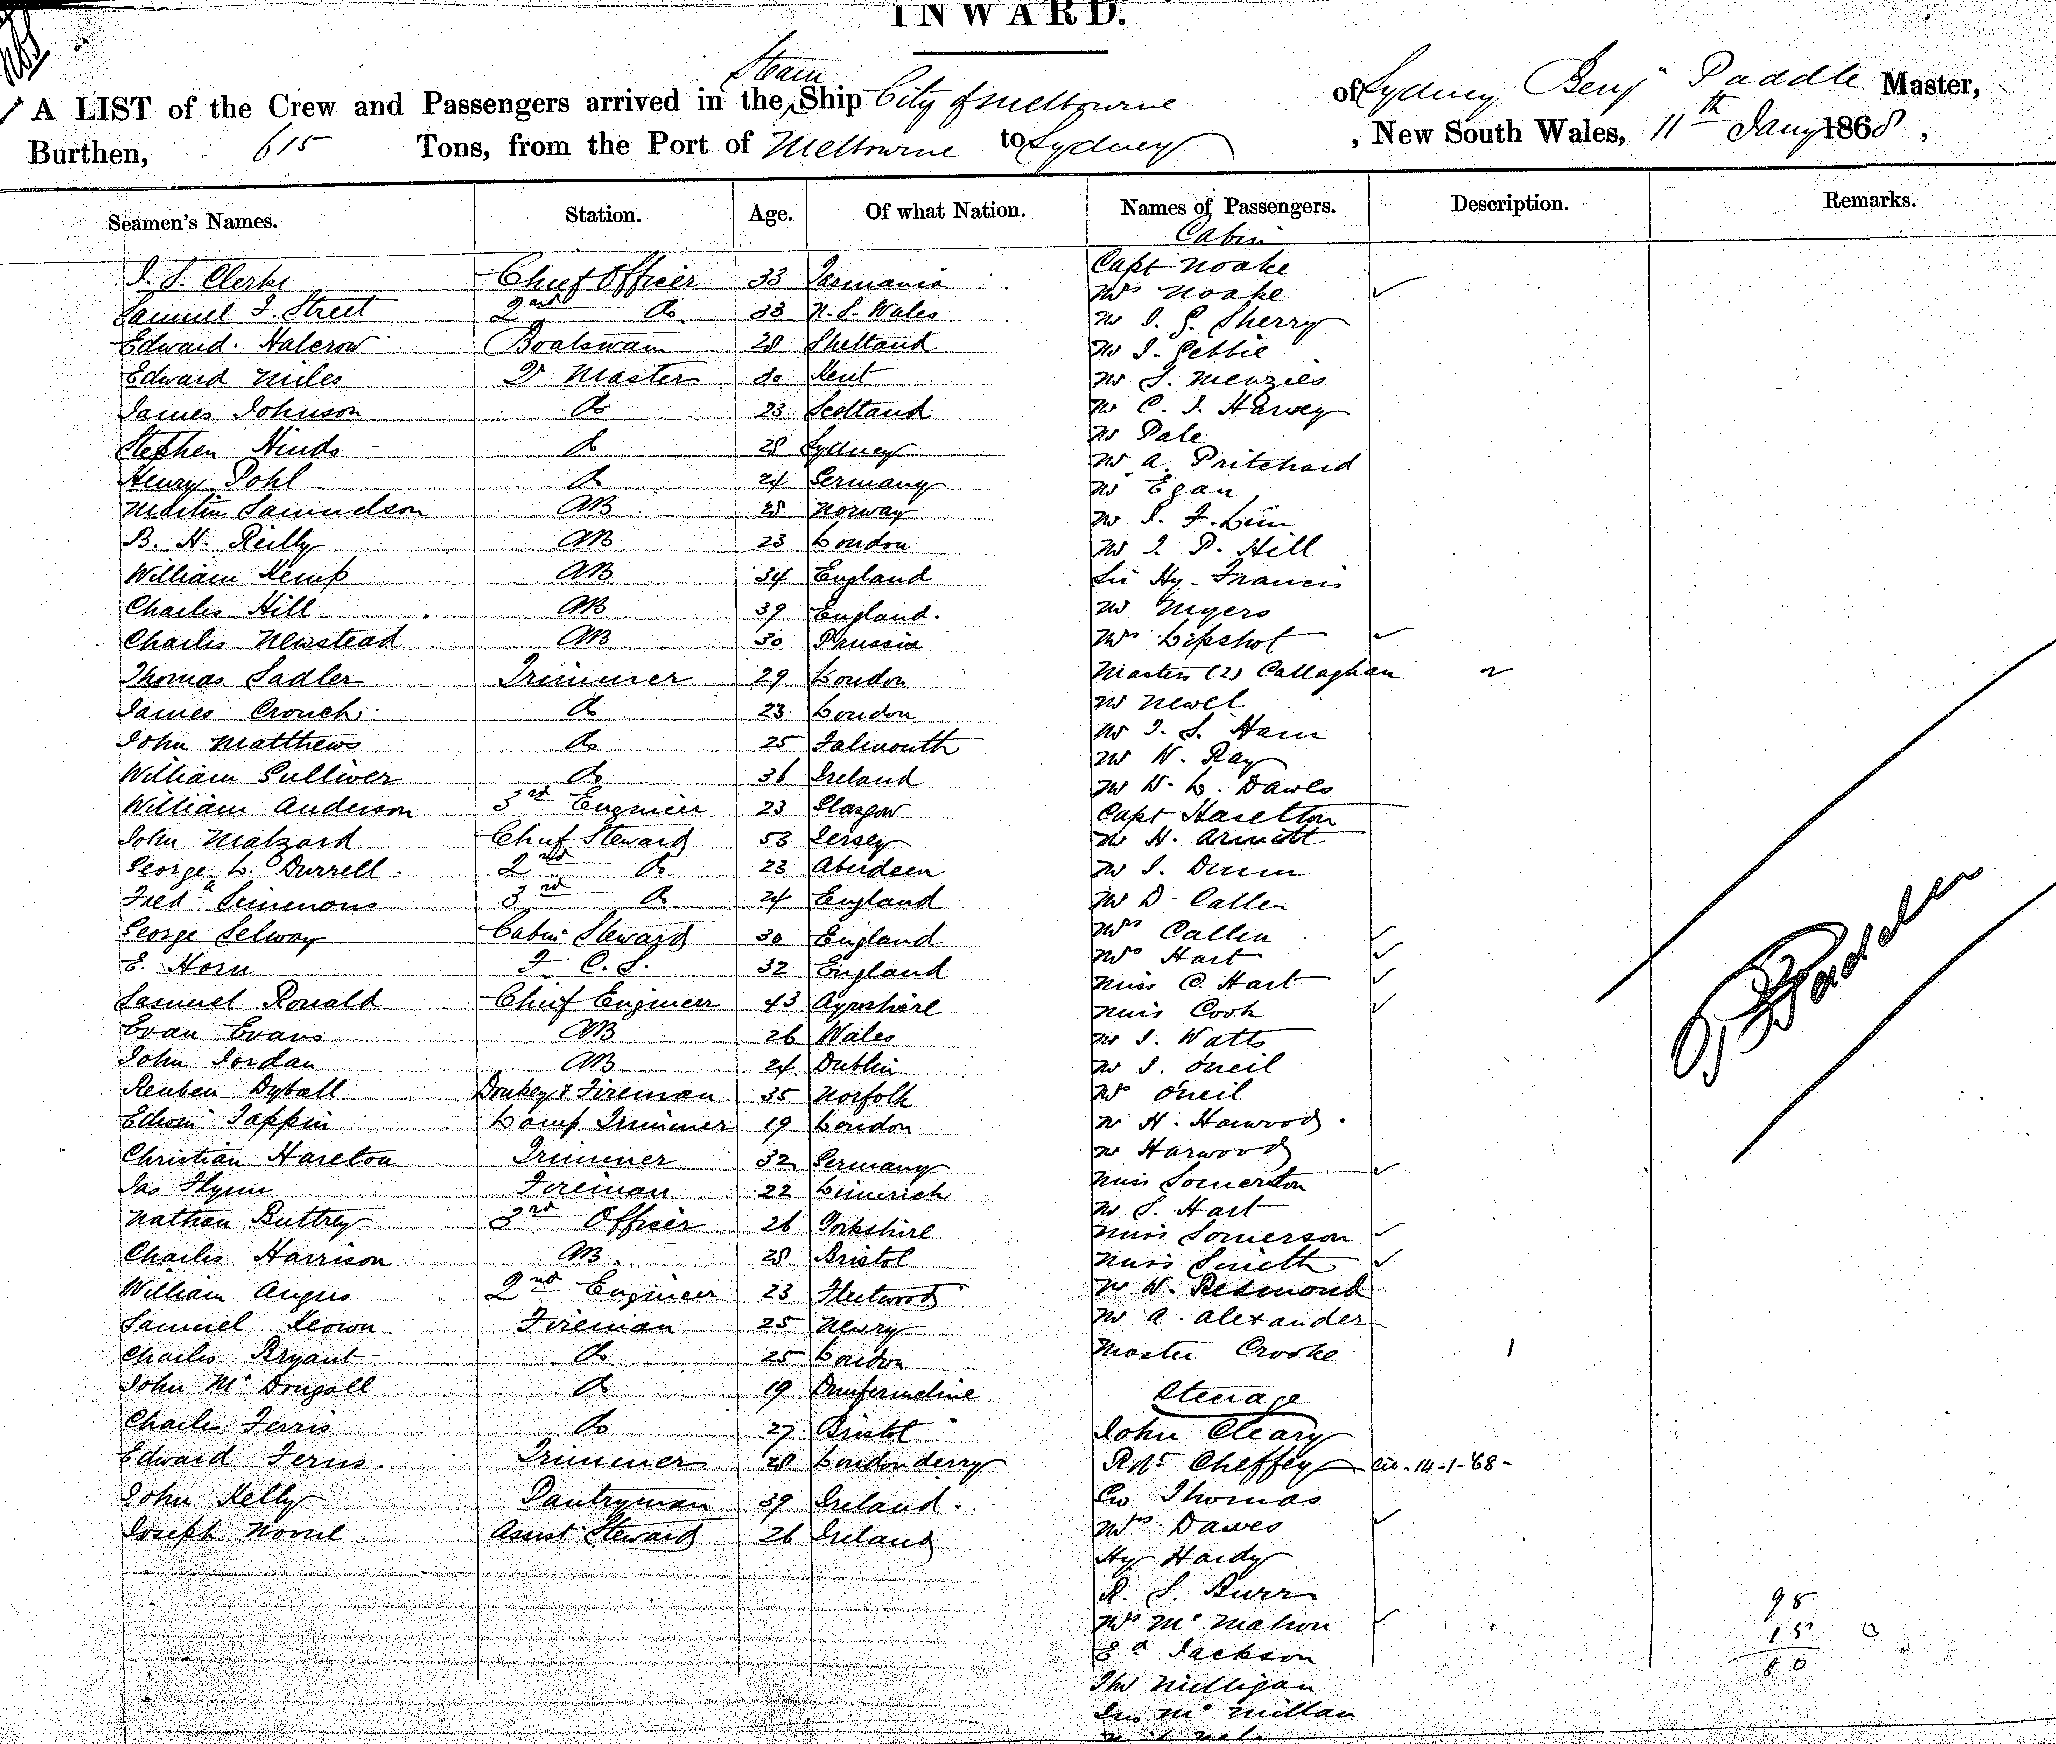 INWARD.
A LIST of the Crew and Passengers arrived in the Steam Ship City of Melbourne of Sydney Benj Paddle Master,
Burthen, 615 Tons, from the Port of Melbourne to Sydney , New South Wales, 11th Jany 1868,
Seamen's Names. Station. Age. Of what Nation. Names of Passengers. Description. Remarks.
Cabin
Clerke Chief Officer 33 Tasmania Capt Noake
Mrs Noake
Samuel J. Street 2nd Do 33 N. S. Wales Mr J. G. Sherry
Edward Halcrow Boatswain 28 Shetland Mr J. Gettie
Edward Miles Qr Master 30 Kent Mr J. Menzies
James Johnson Do 23 Scotland Mr C. J. Harvey
Stephen Hinds Do 28 Sydney Mr Pale
Henry Pohl Do 24 Germany Mr A. Pritchard
Martin Samuelson AB 28 Norway Mr Egan
B. H. Reilly AB 23 London Mr
William Kemp AB 34 England Mr J. P. Hill
Sir Hy. Francis
Charles Hill AB 39 England. Mr Myers
Charles Newstead AB 30 Prussia Mrs Lipshot
Thomas Sadler Trimmer 29 London Masters (2) Callaghan 2
James Crouch Do 23 London Mr Newel
John Matthews Do 25 Falmouth Mr J. S. Ham
William Gulliver Do 36 Ireland Mr W. Ray
Mr W. L. Dawes
William Anderson 3rd Engineer 23 Glasgow Capt Haselton
John Malzard Chief Steward 53 Jersey Mr H. Armitt
George L. Durrell 2nd Do 23 Aberdeen Mr J. Dunn
Fredk Simmons 3rd Do 24 England Mr D. Callen
George Selway Cabin Steward 30 England Mrs Callen
E. Horn F. C. S. 32 England Mrs Hart
Samuel Ronald Chief Engineer 43 Ayrshire Miss C. Hart
Miss Cook
Evan Evans AB 26 Wales Mr J. Watts
John Jordan AB 24 Dublin Mr J. O'Neil
Reuben Dyball Donkey & Fireman 35 Norfolk Mrs O'Neil
Edwin Tappin Lamp Trimmer 19 London Mr H. Harwood
Christian Haselton Trimmer 32 Germany Mr Harwood
Jas Flynn Fireman 22 Limerick Miss Somerton
Nathan Buttrey 3rd Officer 26 Yorkshire Mr S. Hart
Miss Somerson
Charles Harrison AB 28 Bristol Miss Smith
William Angus 2nd Engineer 23 Fleetwood Mr W. Redmond
Samuel Keown Fireman 25 Newry Mr A. Alexander
Charles Bryant Do 25 London Master Crooke 1
John McDougall Do 19 Dunfermline
Steerage
Charles Ferris Do 27 Bristol John Cleary
Edward Ferris. Trimmer 28 Londonderry Robt Cheffey 14-1-'68-
John Kelly Pantryman 39 Ireland. Thomas
Joseph Assist Steward 26 Ireland Mrs Dawes
Hy Hardy
R. S. Burr
Mrs McMahon
Ed Jackson
Thos Milligan
McMillan
95
15
80
B Paddle